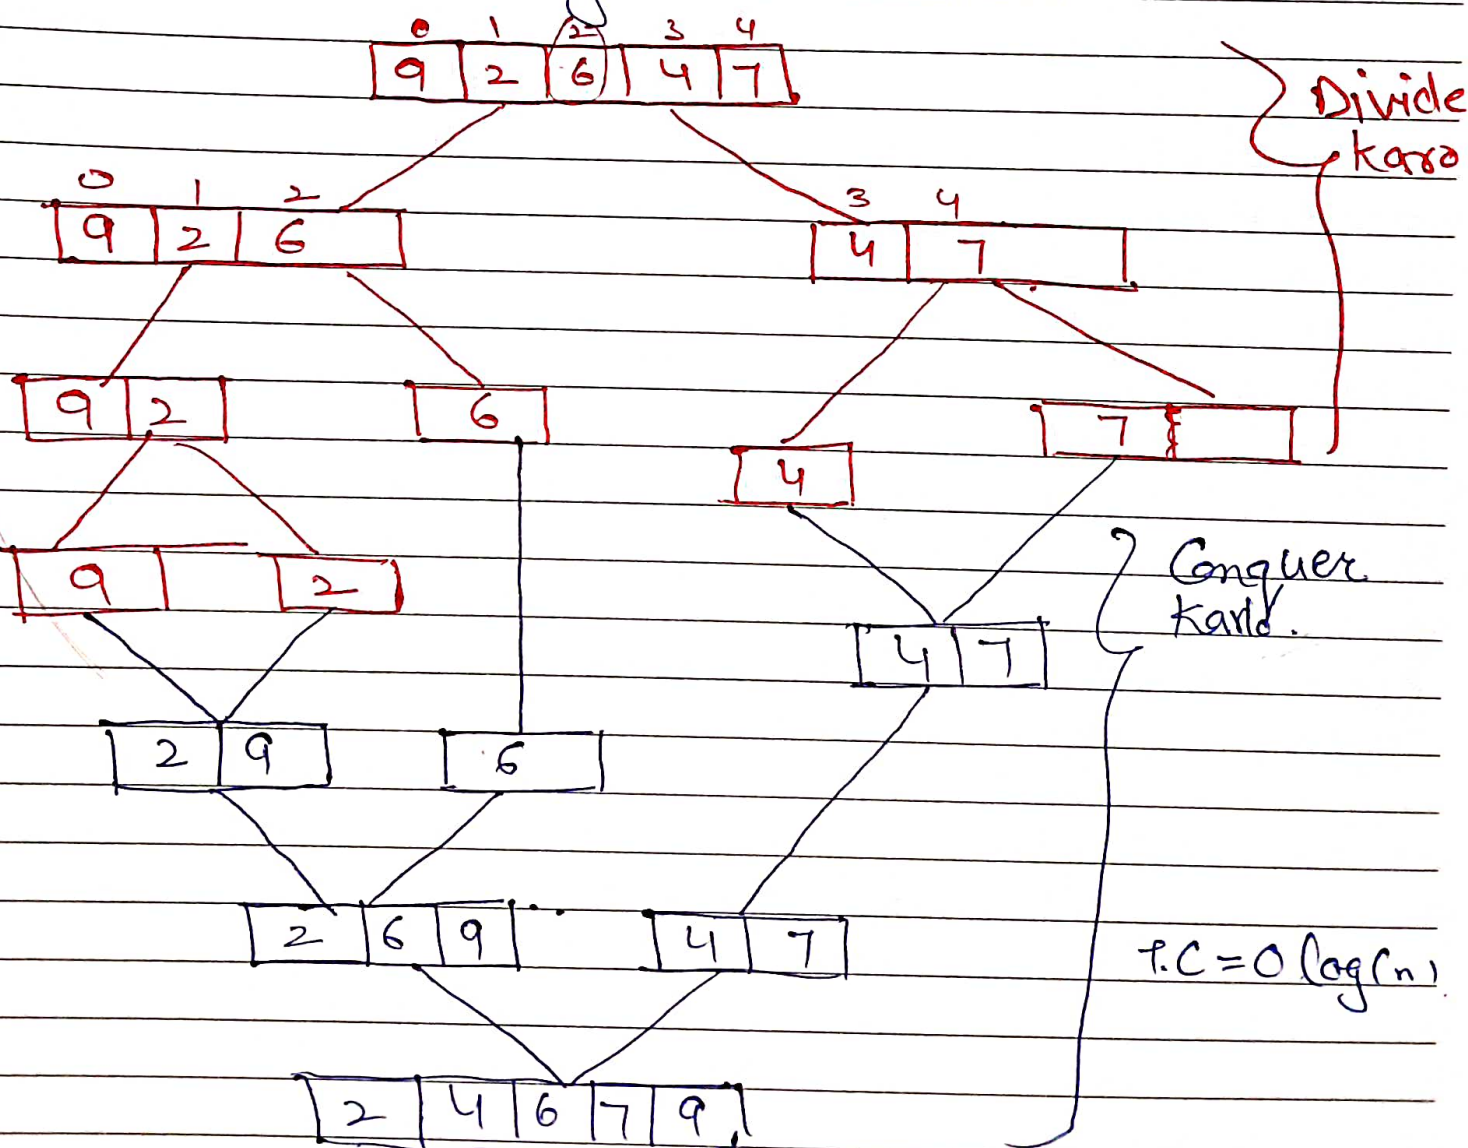 0 1 2 3 4
9 2 6 4 7
Divide
karo
0 1 2
9 2 6
3 4
4 7
9 2
6
4
7
9
2
Conquer
Karlo.
4 7
2 9
6
2 6 9
4 7
T.C = O log(n)
2 4 6 7 9